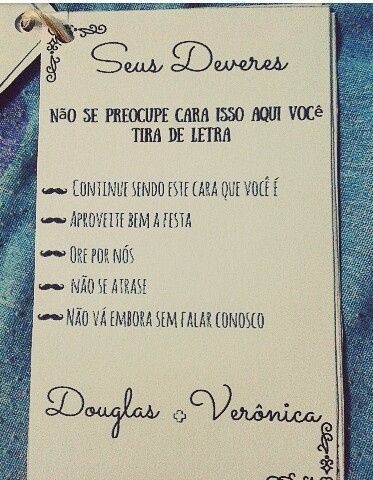 Seus Deveres
Não se preocupe cara isso aqui você
tira de letra
Continue sendo este cara que você é
Aproveite bem a festa
Ore por nós
Não se atrase
Não vá embora sem falar conosco
Douglas + Verônica